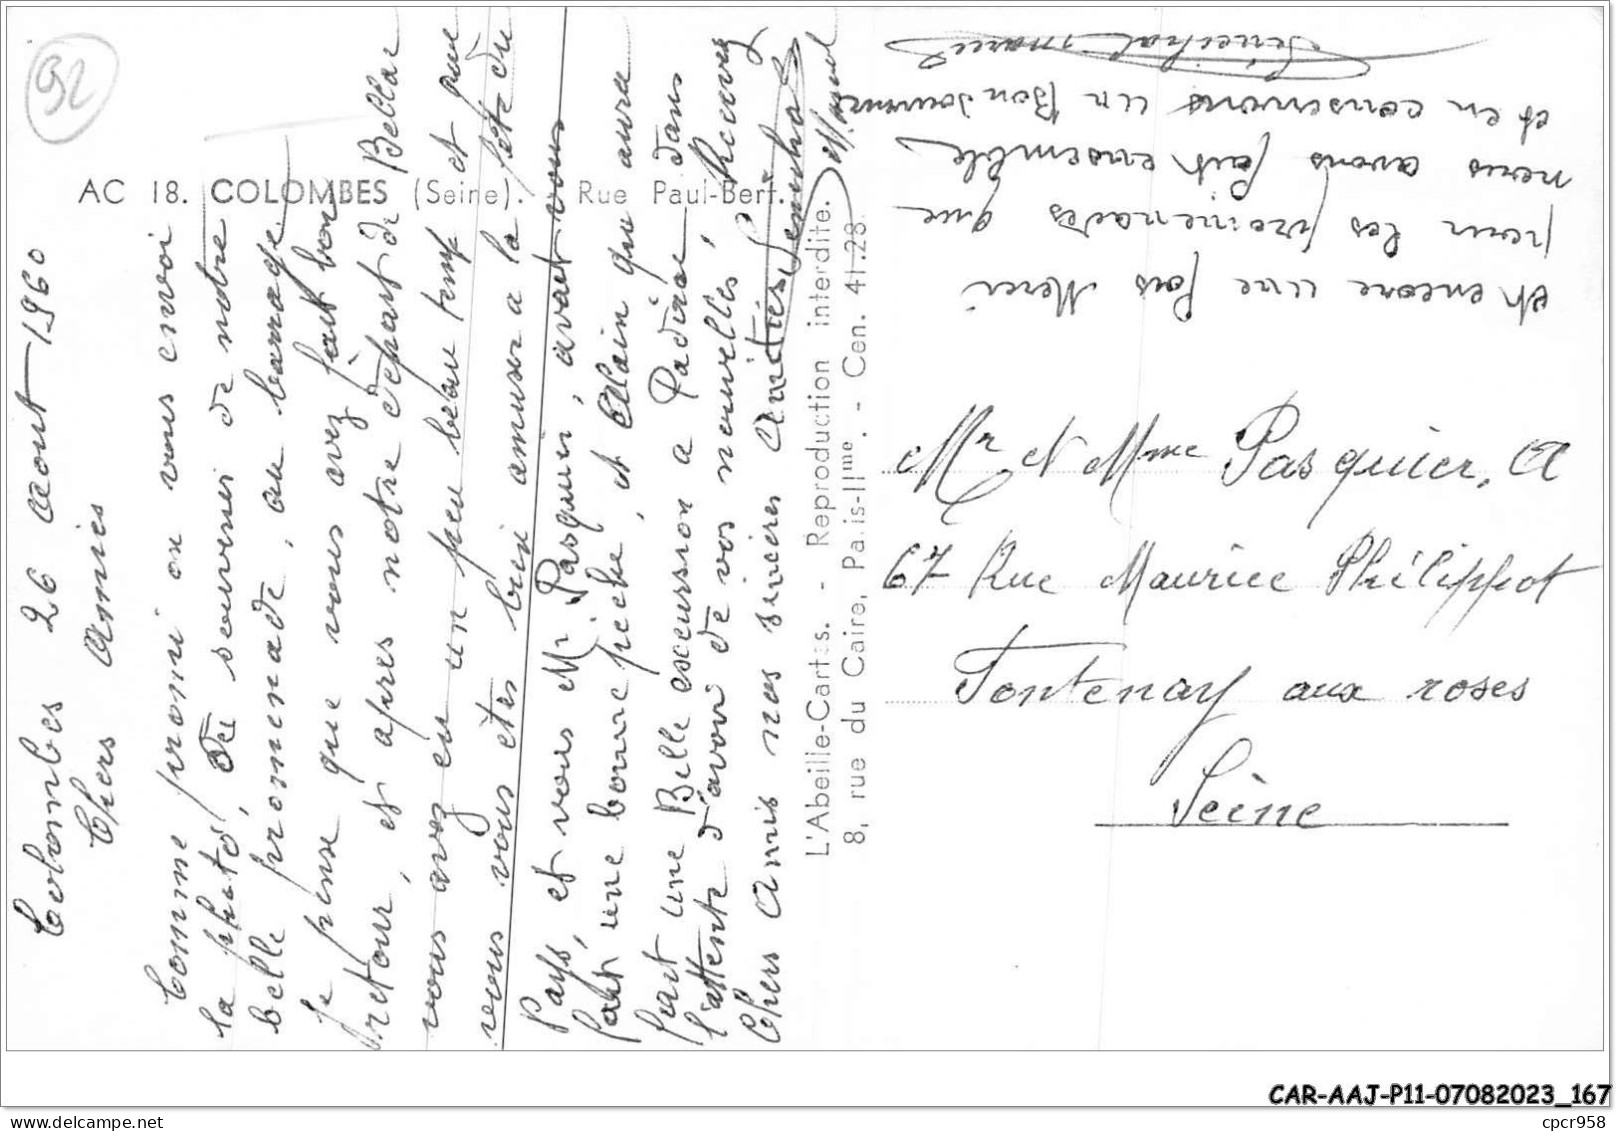 92
AC 18. COLOMBES (Seine). - Rue Paul-Bert.
Colombes 26 Aout 1960
Chers Amies
Comme promi on vous envoi
la photo, de souvenir de notre
belle promenade, au barrage,
je pense que vous avez fait bon
retour, et apres notre depart de Bellac
vous avez eu un peu beau temp et que
vous vous êtes bien amuser a la fête du
Pays, et vous Mr Pasquier, avait vous
fait une bonne peche, et Alain qui aura
fait une Belle escurssion a Padirac dans
l'attente d'avoir de vos nouvelles, Recevez
Chers Amis nos sincères Amitiés
et encore une fois Merci
pour les promenades que
nous avons fait ensemble
et en conservons un Bon
L'Abeille-Cartes. - Reproduction interdite.
8, rue du Caire, Paris-IIme. - Cen. 41-28
Mr et Mme Pasquier, A
67 Rue Maurice Phélippot
Fontenay aux roses
Seine
CAR-AAJ-P11-07082023_167
cpcr958